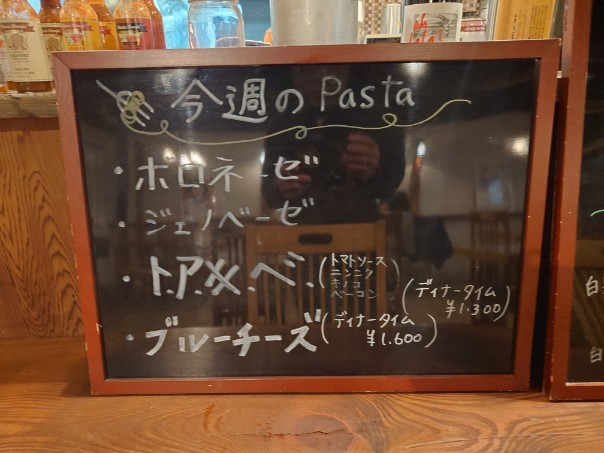 今週のPasta
・ホロネーゼ
・ジェノベーゼ
・ト.ア.メ.ベ.(トマトソース
ニンニク
キノコ
ベーコン)
(ディナータイム
¥1.300)
・ブルーチーズ(ディナータイム
¥1.600)
白
白